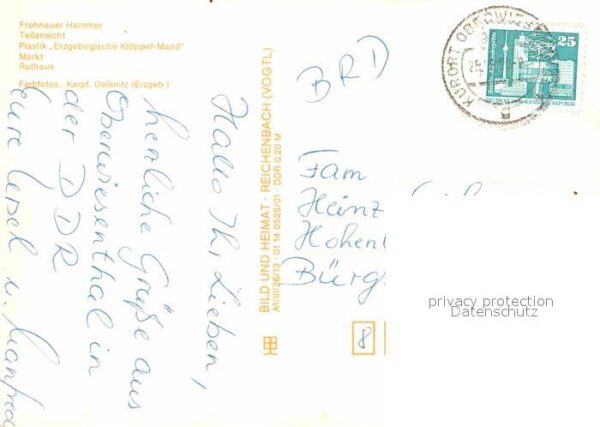 Frohnauer Hammer
Teilansicht
Plastik „Erzgebirgische Klöppel-Maad"
Markt
Rathaus
Farbfotos: Karpf, Oelsnitz (Erzgeb.)
Hallo Ihr Lieben,
herzliche Grüße aus
Oberwiesenthal in
der DDR
Eure Liesel u. Manfred
BILD UND HEIMAT · REICHENBACH (VOGTL)
A1/III/26/13 · 01 14 0525/01 · DDR 0,20 M
BRD
KURORT OBERWIESE
25
Fam
Heinz
Hohen
Bürg
8
privacy protection
Datenschutz